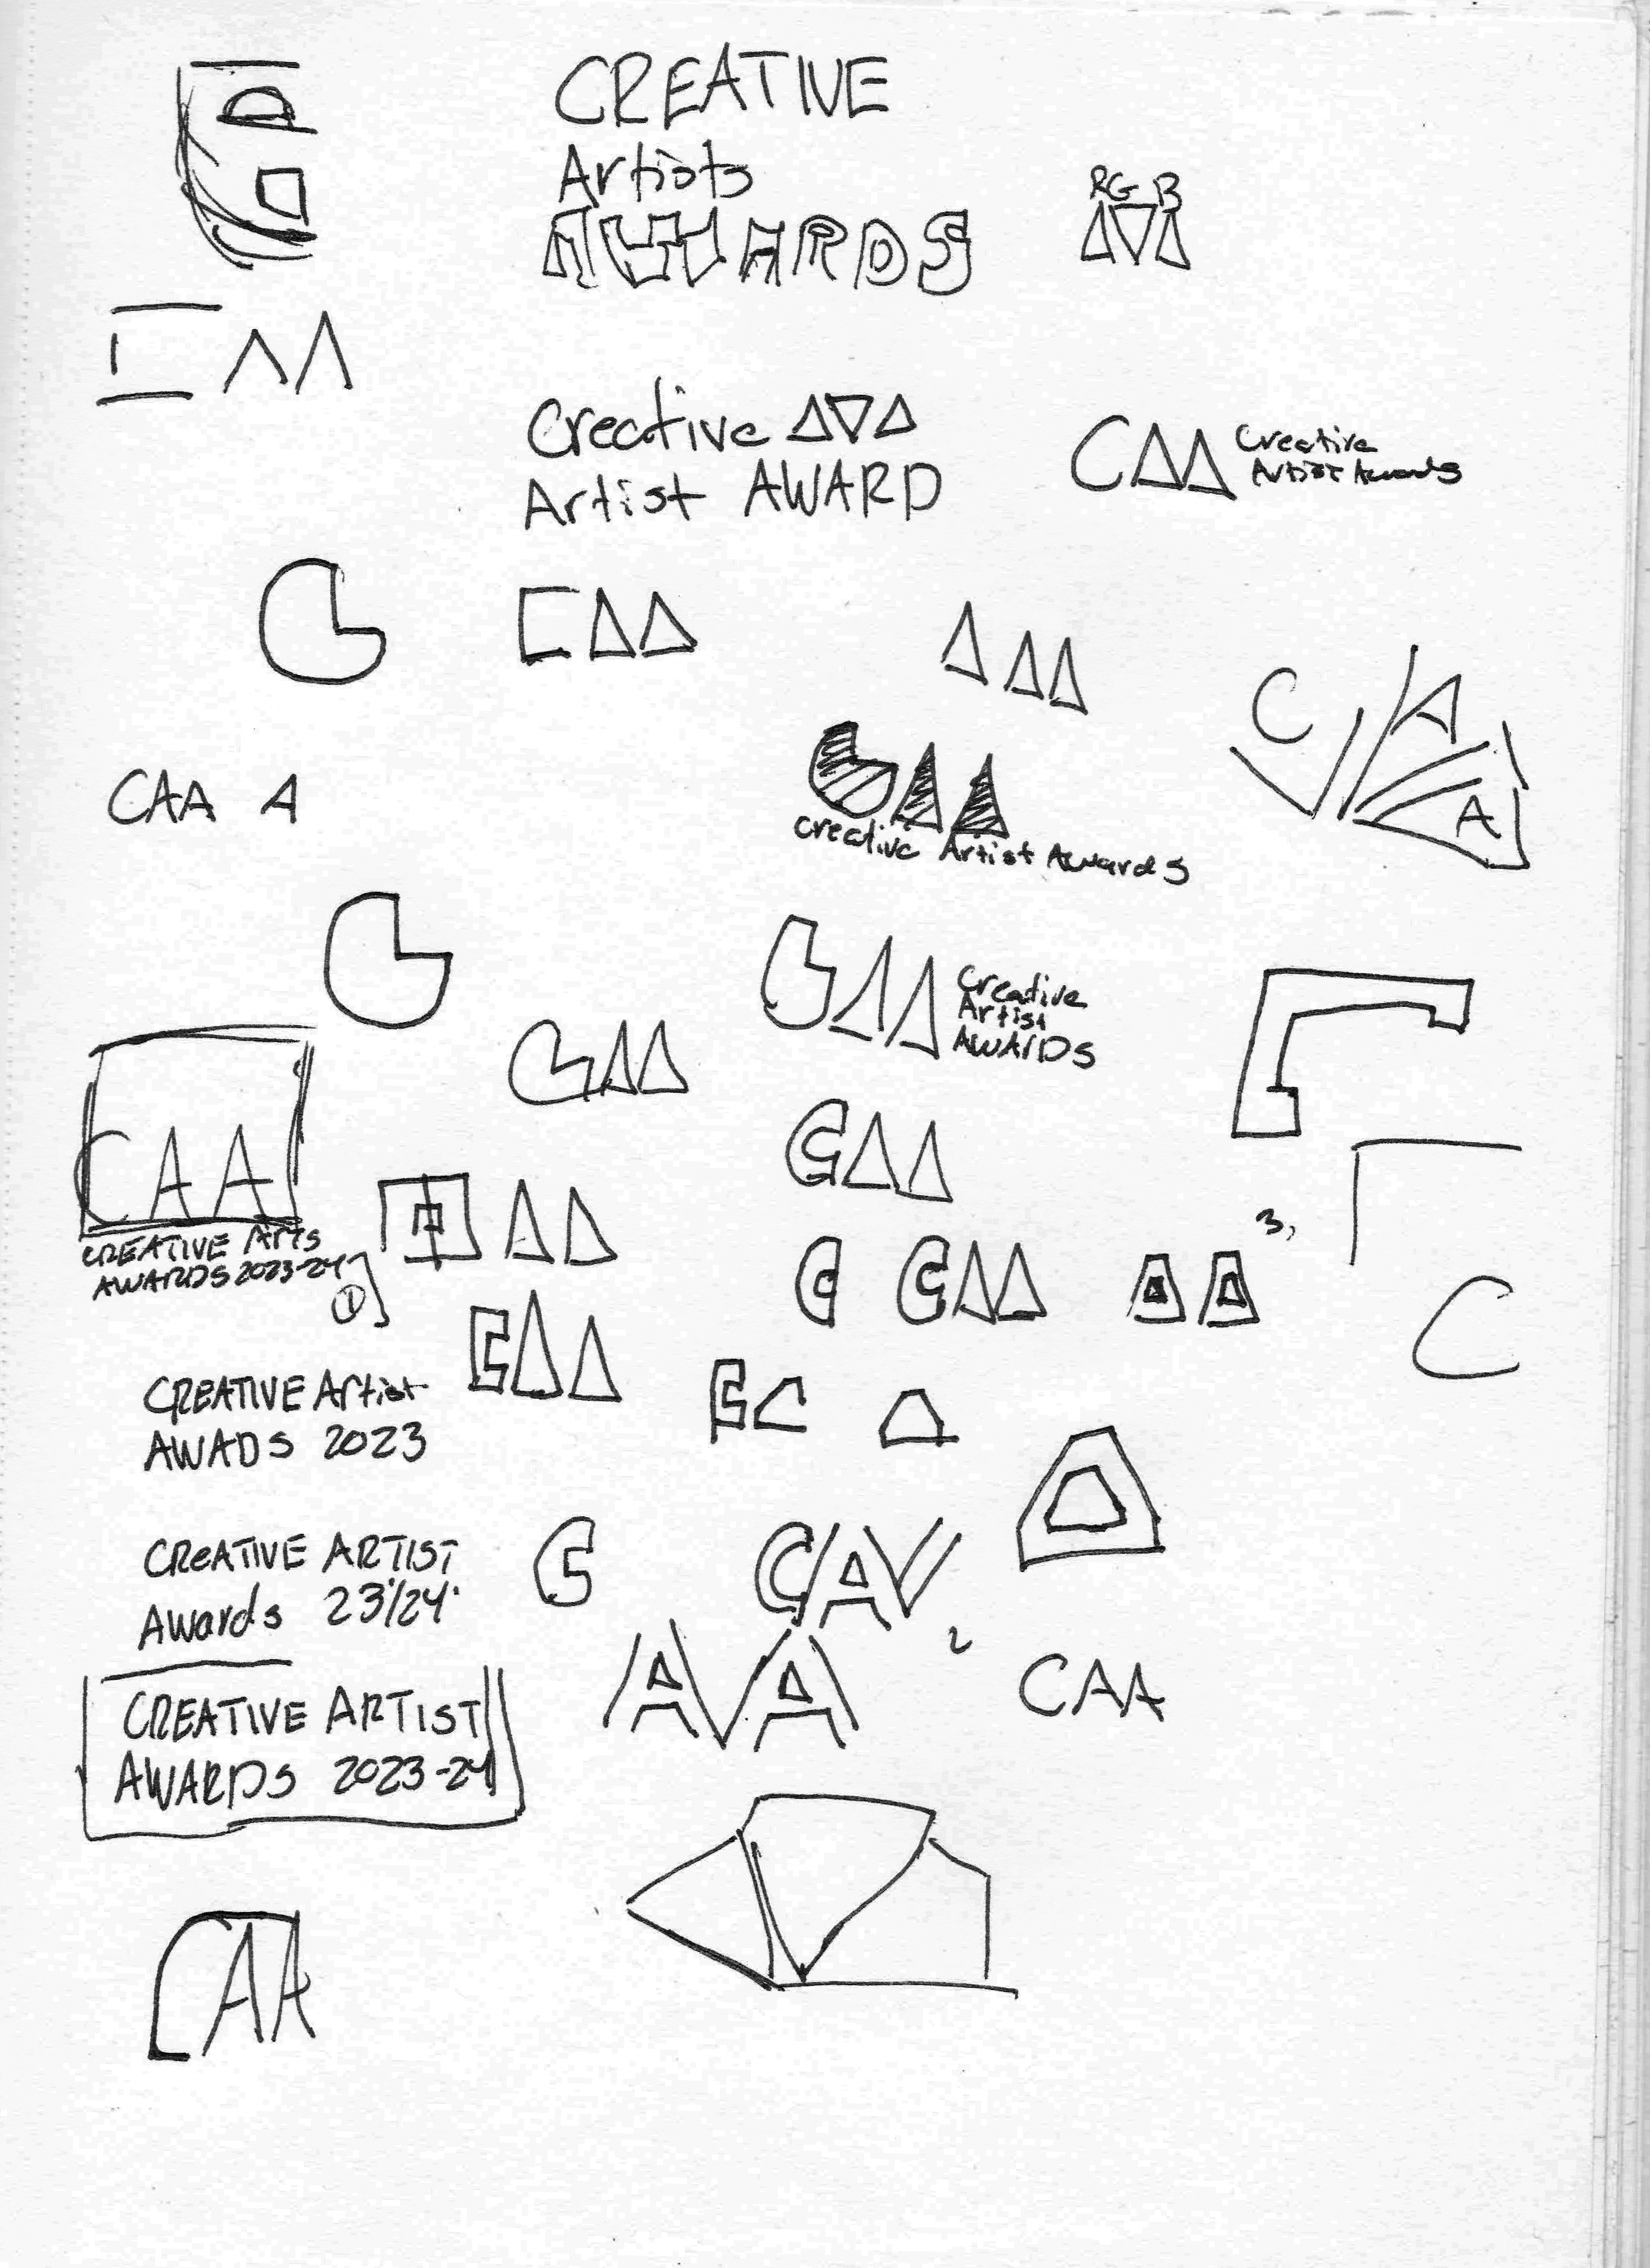 CREATIVE
Artists
AWARDS
RGB
Creative
Artist AWARD
CAA Creative
Artist Awards
CAA
C A
A
CAA A
CAA
Creative Artist Awards
CAA
Creative
Artist
AWARDS
CAA
CAA
CAA
CREATIVE Arts
AWARDS 2023-24
1
3,
C CAA AA
C
CAA
CREATIVE Artist
AWADS 2023
CREATIVE ARTIST
Awards 23'/24'
C
CAV
AVA
2
CAA
CREATIVE ARTIST
AWARDS 2023-24
CAA